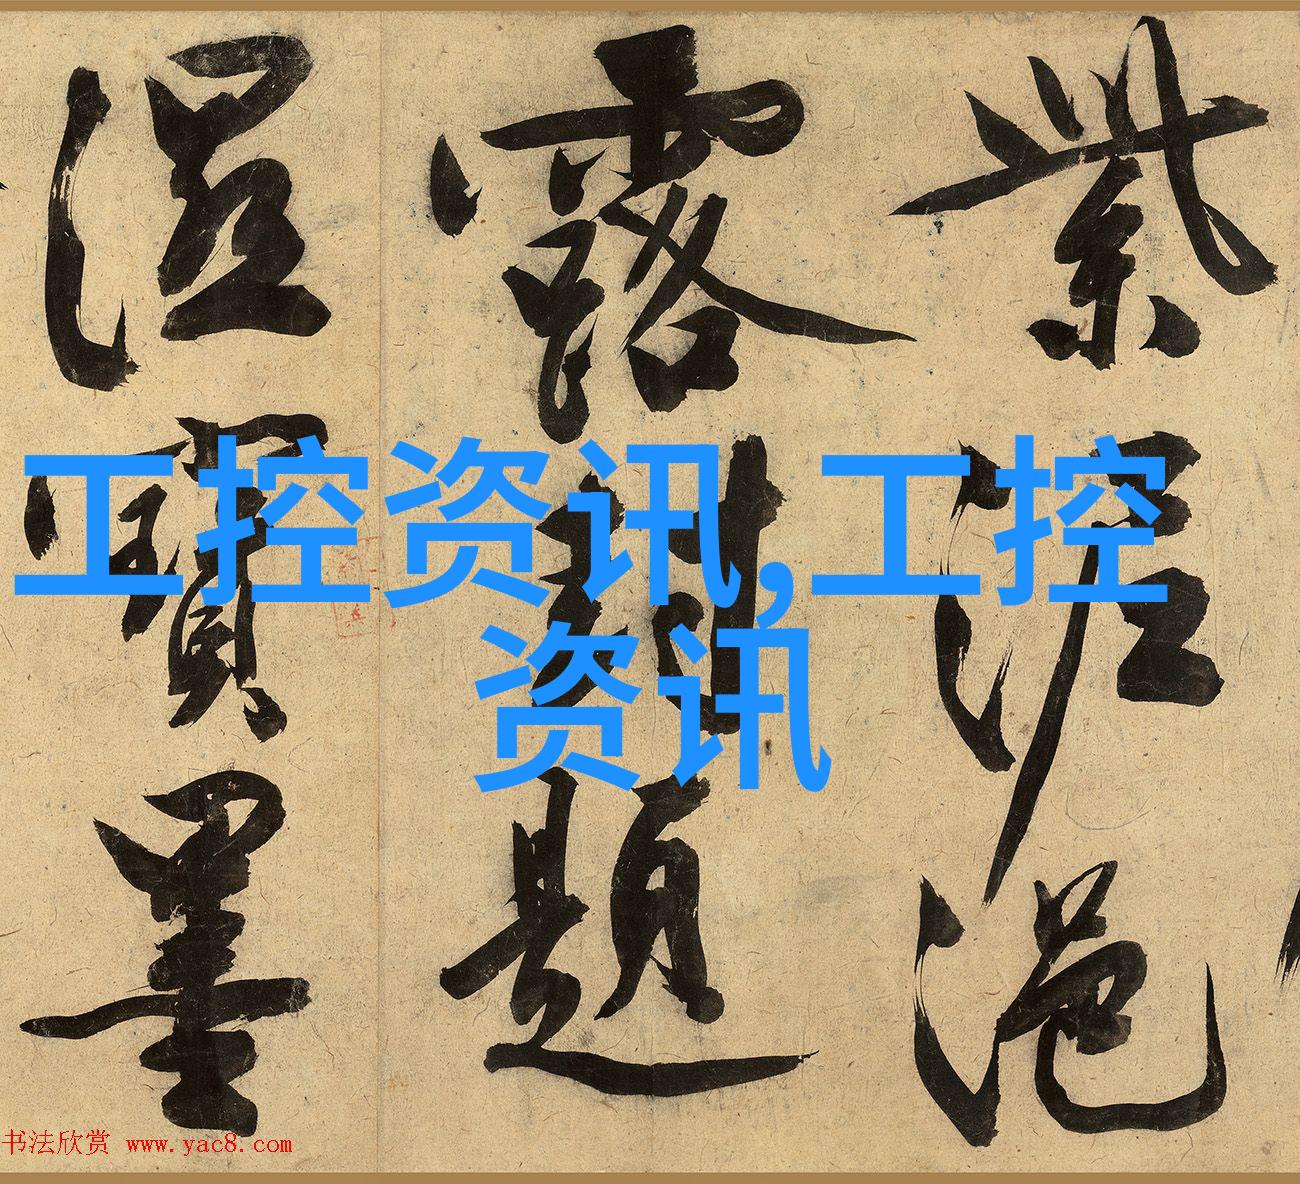 紫泥浥
露封題
湿寶墨
工控资讯,工控
资讯
书法欣赏 www.yac8.com